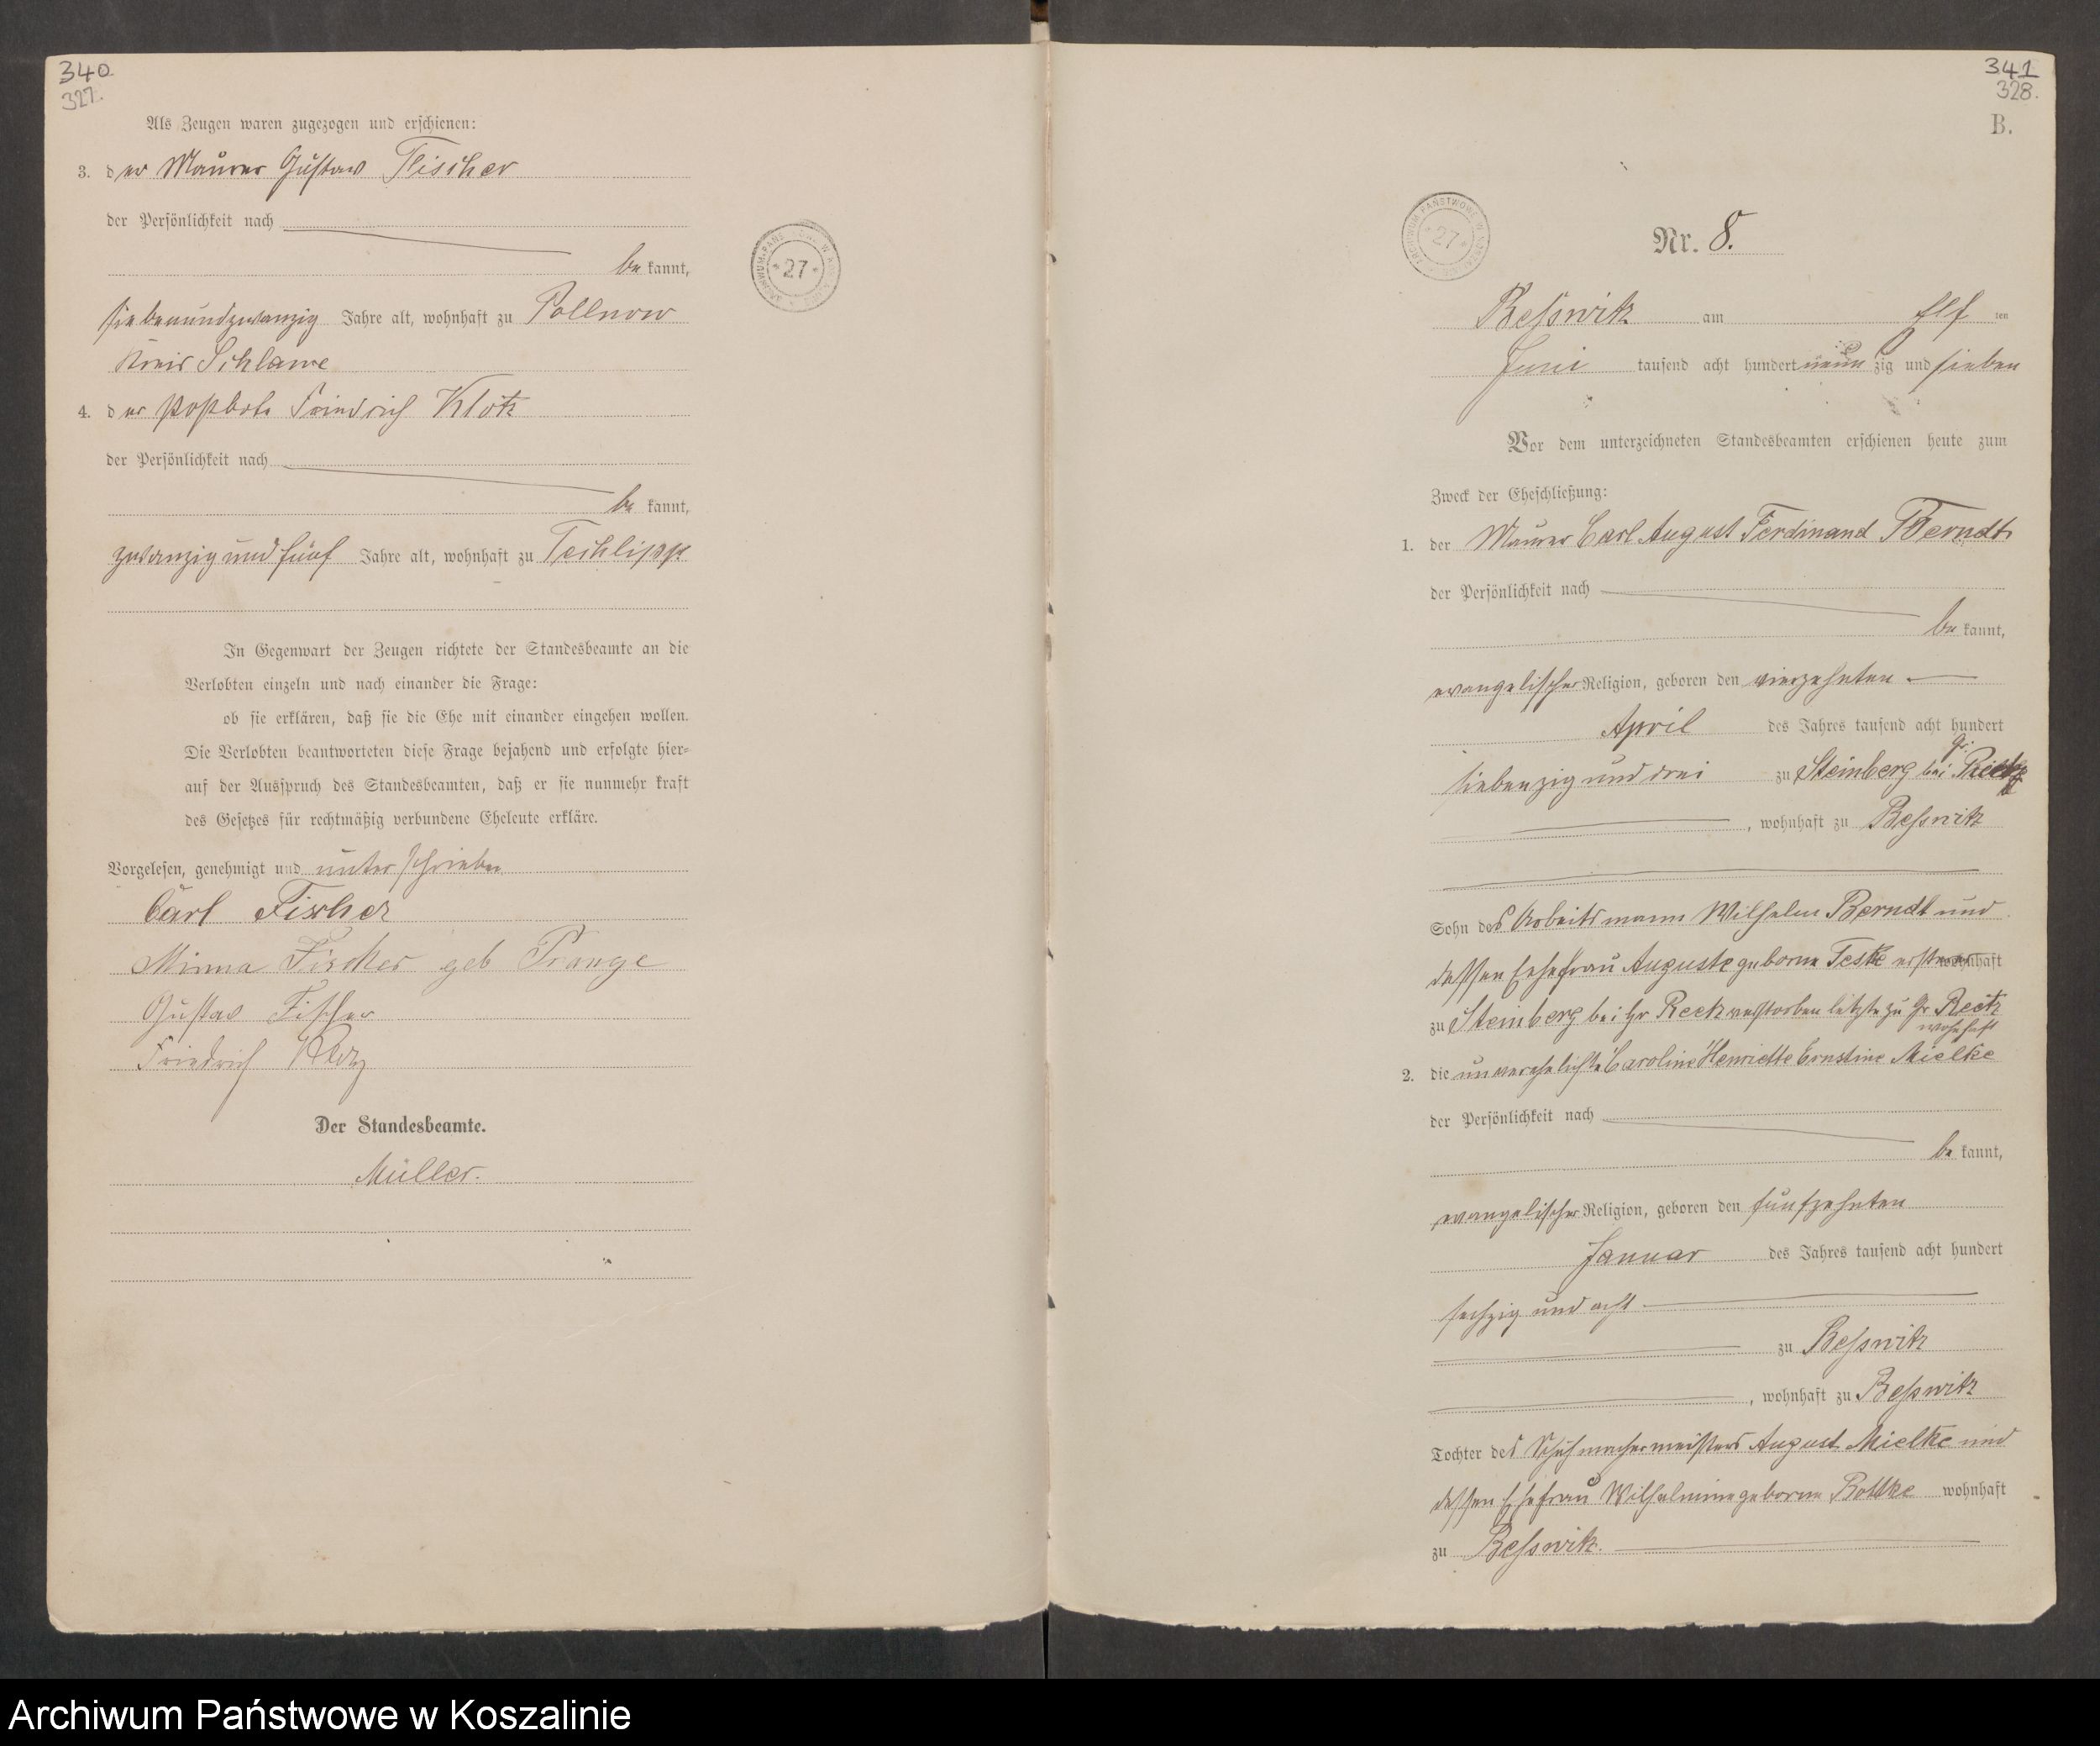 340
327.
Als Zeugen waren zugezogen und erschienen:
3. der Maurer Gustav Fischer
der Persönlichkeit nach
bekannt,
siebenundzwanzig Jahre alt, wohnhaft zu Pollnow
Kreis Schlawe
4. der Postbote Friedrich Klotz
der Persönlichkeit nach
bekannt,
zwanzig und fünf Jahre alt, wohnhaft zu Techlipp
In Gegenwart der Zeugen richtete der Standesbeamte an die
Verlobten einzeln und nach einander die Frage:
ob sie erklären, daß sie die Ehe mit einander eingehen wollen.
Die Verlobten beantworteten diese Frage bejahend und erfolgte hier-
auf der Ausspruch des Standesbeamten, daß er sie nunmehr kraft
des Gesetzes für rechtmäßig verbundene Eheleute erkläre.
Vorgelesen, genehmigt und unterschrieben
Carl Fischer
Minna Fischer geb Prange
Gustav Fischer
Friedrich Klotz
Der Standesbeamte.
Müller.
27
341
328.
B.
27
Nr. 8.
Beßwitz am Elften
Juni tausend acht hundert neunzig und sieben
Vor dem unterzeichneten Standesbeamten erschienen heute zum
Zweck der Eheschließung:
1. der Maurer Carl August Ferdinand Berndt
der Persönlichkeit nach
bekannt,
evangelischer Religion, geboren den vierzehnten
April des Jahres tausend acht hundert
siebenzig und drei zu Steinberg bei Gr. Reetz
, wohnhaft zu Beßwitz
Sohn des Arbeitsmann Wilhelm Berndt und
dessen Ehefrau Auguste geborne Teske ersterer wohnhaft
zu Steinberg bei Gr Reetz verstorben letzte zu Gr Reetz
wohnhaft
2. die unverehelichte Caroline Henriette Ernstine Mielke
der Persönlichkeit nach
bekannt,
evangelischer Religion, geboren den fünfzehnten
Januar des Jahres tausend acht hundert
sechzig und acht
zu Beßwitz
, wohnhaft zu Beßwitz
Tochter des Schuhmachermeisters August Mielke und
dessen Ehefrau Wilhelmine geborne Bottke wohnhaft
zu Beßwitz.
Archiwum Państwowe w Koszalinie